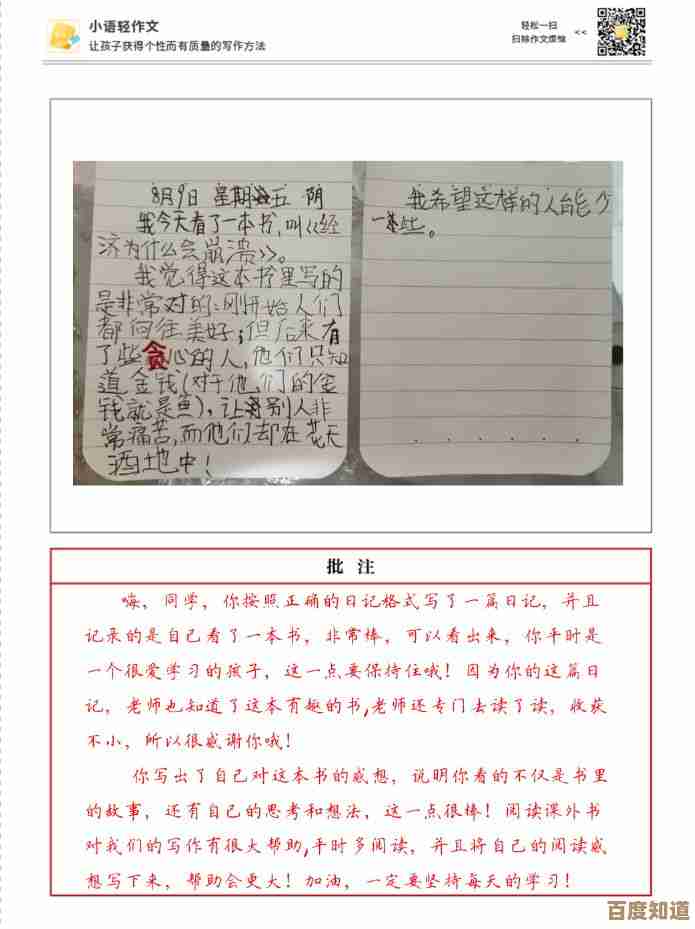 小语轻作文
让孩子获得个性而有质量的写作方法
轻松一扫
扫除作文烦恼
<<
8月9日 星期五 阴
我今天看了一本书,叫《经
济为什么会崩溃》。
我觉得这本书里写的
是非常对的:刚开始人们
都向往美好;但后来有
了些贪心的人,他们只知
道金钱(对于他们的金
钱就是鱼),让别人非
常痛苦,而他们却在花天
酒地中!
我希望这样的人能少
一些。
批 注
嗨,同学,你按照正确的日记格式写了一篇日记,并且
记录的是自己看了一本书,非常棒,可以看出来,你平时是
一个很爱学习的孩子,这一点要保持住哦!因为你的这篇日
记,老师也知道了这本有趣的书,老师还专门去读了读,收获
不小,所以很感谢你哦!
你写出了自己对这本书的感想,说明你看的不仅是书里
的故事,还有自己的思考和想法,这一点很棒!阅读课外书
对我们的写作有很大帮助,平时多阅读,并且将自己的阅读感
想写下来,帮助会更大!加油,一定要坚持每天的学习!
百度知道